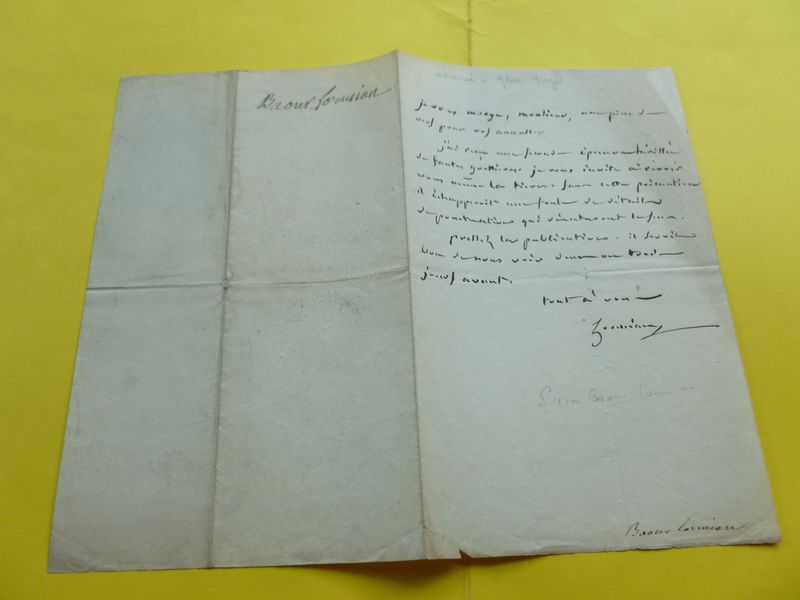 Baour Lormian
adressée à Abel Hugo
je vous envoye, monsieur, une pièce de
vers pour vos annales.
j'ai reçu une seconde épreuve hérissée
de fautes grossières. je vous invite à revoir
vous même les tirées. sans cette précaution
il échapperoit une foule de détails
de ponctuation qui dénatureront le sens.
pressez les publications. il
bon de nous voir deux ou trois
jours avant.
tout à vous
Lormian
Baour Lormian
Baour Lormian